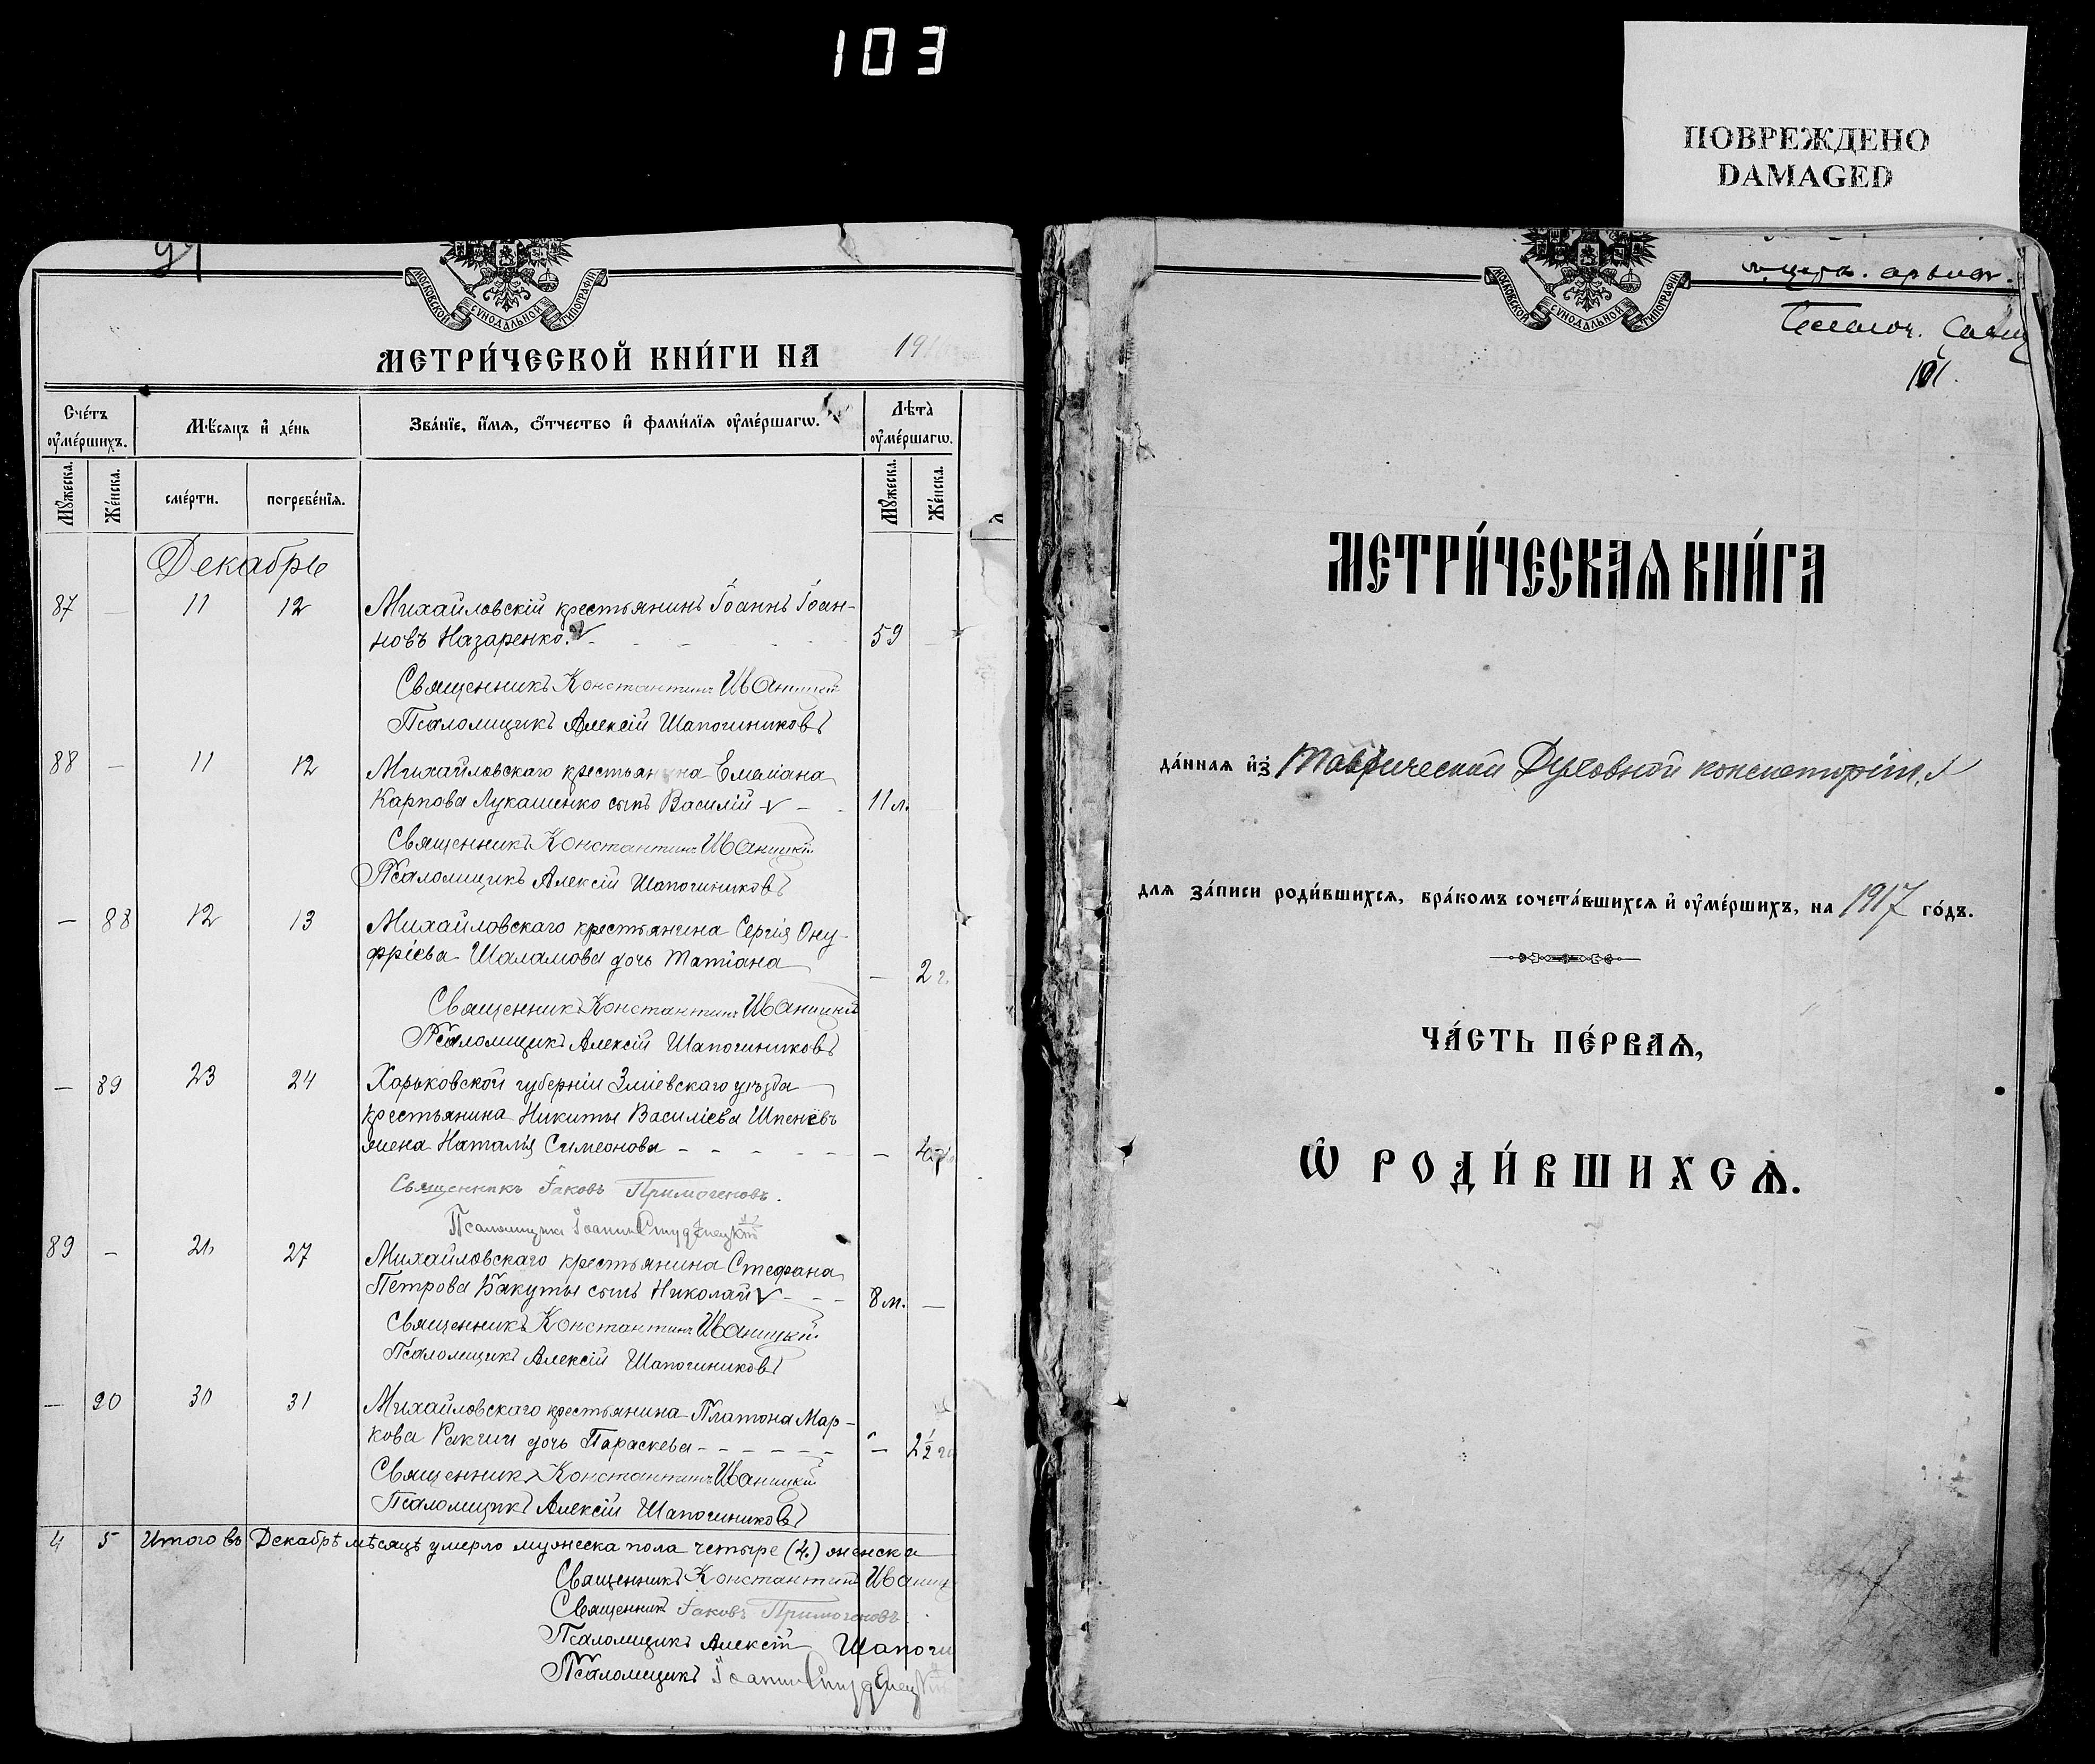 103
ПОВРЕЖДЕНО
DAMAGED
91
МОСКОВСКОЙ СѴНОДАЛЬНОЙ ТИПОГРАФІИ
МЕТРИ́ЧЕСКОЙ КНИ́ГИ НА 19
Сче́тъ ᲂу҆ме́ршихъ.
Мѣ́сяцъ и҆ де́нь
Зва́нїе, и҆́мѧ, ѻ҆́тчество и҆ фами́лїѧ ᲂу҆ме́ршагѡ.
Лѣ̑та ᲂу҆ме́ршагѡ.
Мꙋ́жеска.
Же́нска.
сме́рти.
погребе́нїѧ.
Мꙋ́жеска.
Же́нска.
Декабрь
87 — 11 12 Михайловскій крестьянинъ Іоаннъ Іоан-
новъ Назаренко. 59 —
Священникъ Константинъ Иваницкій
Псаломщикъ Алексій Шапошниковъ
88 — 11 12 Михайловскаго крестьянина Емеліана
Карпова Лукашенко сынъ Василій 11 л.
Священникъ Константинъ Иваницкій
Псаломщикъ Алексій Шапошниковъ
— 88 12 13 Михайловскаго крестьянина Сергія Ону-
фріева Шаламова дочь Татіана — 2 г.
Священникъ Константинъ Иваницкій
Псаломщикъ Алексій Шапошниковъ
— 89 23 24 Харьковской губерніи Зміевскаго уѣзда
крестьянина Никиты Василіева
жена Наталія Симеонова —
Священникъ Іаковъ Примогеновъ.
Псаломщикъ Іоаннъ
89 — 27 Михайловскаго крестьянина Стефана
Петрова Бакуты сынъ Николай 8 м. —
Священникъ Константинъ Иваницкій
Псаломщикъ Алексій Шапошниковъ
— 90 30 31 Михайловскаго крестьянина Платона Мар-
кова дочь Параскева — 2½ го
Священникъ Константинъ Иваницкій
Псаломщикъ Алексій Шапошниковъ
4 5 Итого въ Декабрѣ мѣсяцѣ умерло мужеска пола четыре (4.) женска
Священникъ Константинъ Иваниц
Священникъ Іаковъ Примогеновъ.
Псаломщикъ Алексій Шапош
Псаломщикъ Іоаннъ
МОСКОВСКОЙ СѴНОДАЛЬНОЙ ТИПОГРАФІИ
101.
МЕТРИ́ЧЕСКАѦ КНИ́ГА
да́ннаѧ и҆з̾ Таврической Духовной консисторіи.
для за́писи роди́вшихсѧ, бра́комъ сочета́вшихсѧ и҆ ᲂу҆ме́ршихъ, на 1917 го́дъ.
ЧА́СТЬ ПЕ́РВАѦ,
Ѡ҆ РОДИ́ВШИХСѦ.